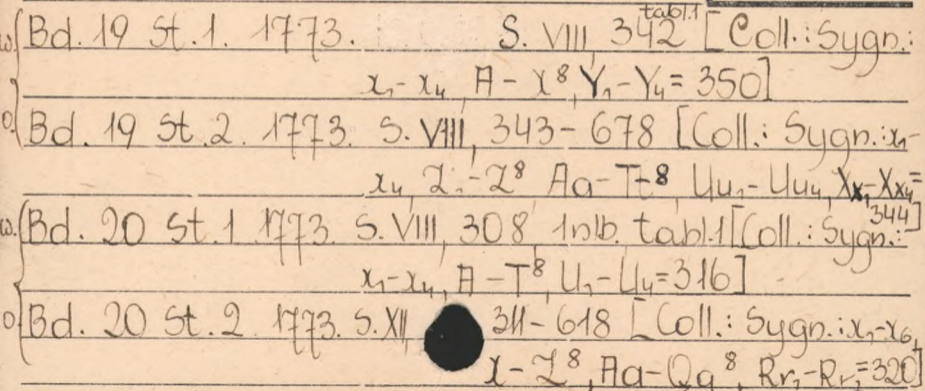 w. Bd. 19 St. 1. 1773. S. VIII, 342 tabl. 1 [Coll.: Sygn.:
x₁-x₄, A - X⁸, Y₁-Y₄ = 350]
o. Bd. 19 St. 2. 1773. S. VIII, 343 - 678 [Coll.: Sygn.: x₁-
x₄, Z.-Z⁸ Aa-Tt⁸, Uu₁-Uu₄, Xx₁-Xx₄ =
344]
w. Bd. 20 St. 1 1773. S. VIII, 308, 1nlb. tabl. 1 [Coll.: Sygn.:
x₁-x₄, A - T⁸, U₁-U₄ = 316]
o. Bd. 20 St. 2. 1773. S. XII, 311 - 618 [Coll.: Sygn.: x₁-x₆,
X - Z⁸, Aa-Qq⁸, Rr₁-Rr₂ = 320]